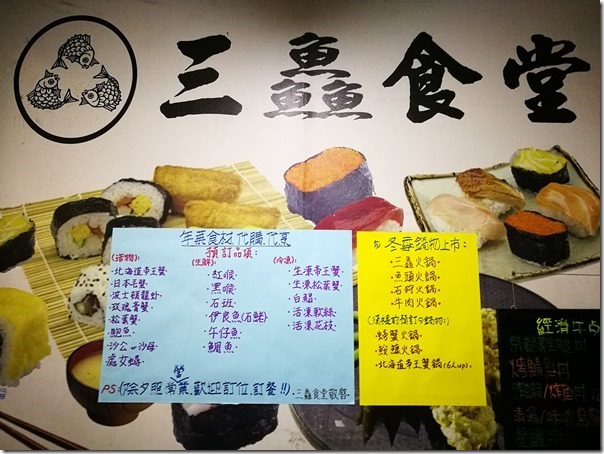 三鱻食堂
年菜食材代購.代烹
預訂品項:
(活物):
·北海道帝王蟹
·日本毛蟹
·波士頓龍蝦
·玫瑰青蟹
·松葉蟹
·鮑魚
·沙公、沙母
·處女蟳
(生鮮):
·紅喉
·黑喉
·石斑
·伊良魚(石鮭)
·午仔魚
·鯛魚
(冷凍):
·生凍帝王蟹
·生凍松葉蟹
·白鯧
·活凍軟絲
·活凍花枝
PS:(除夕照常營業,歡迎訂位,訂餐!!).三鱻食堂敬啓
冬季鍋物上市:
·三鱻火鍋
·魚頭火鍋
·石狗火鍋
·牛肉火鍋
(須提前預訂の鍋物):
·螃蟹火鍋
·鮟鱇火鍋
·北海道帝王蟹鍋(6人up)
經濟午